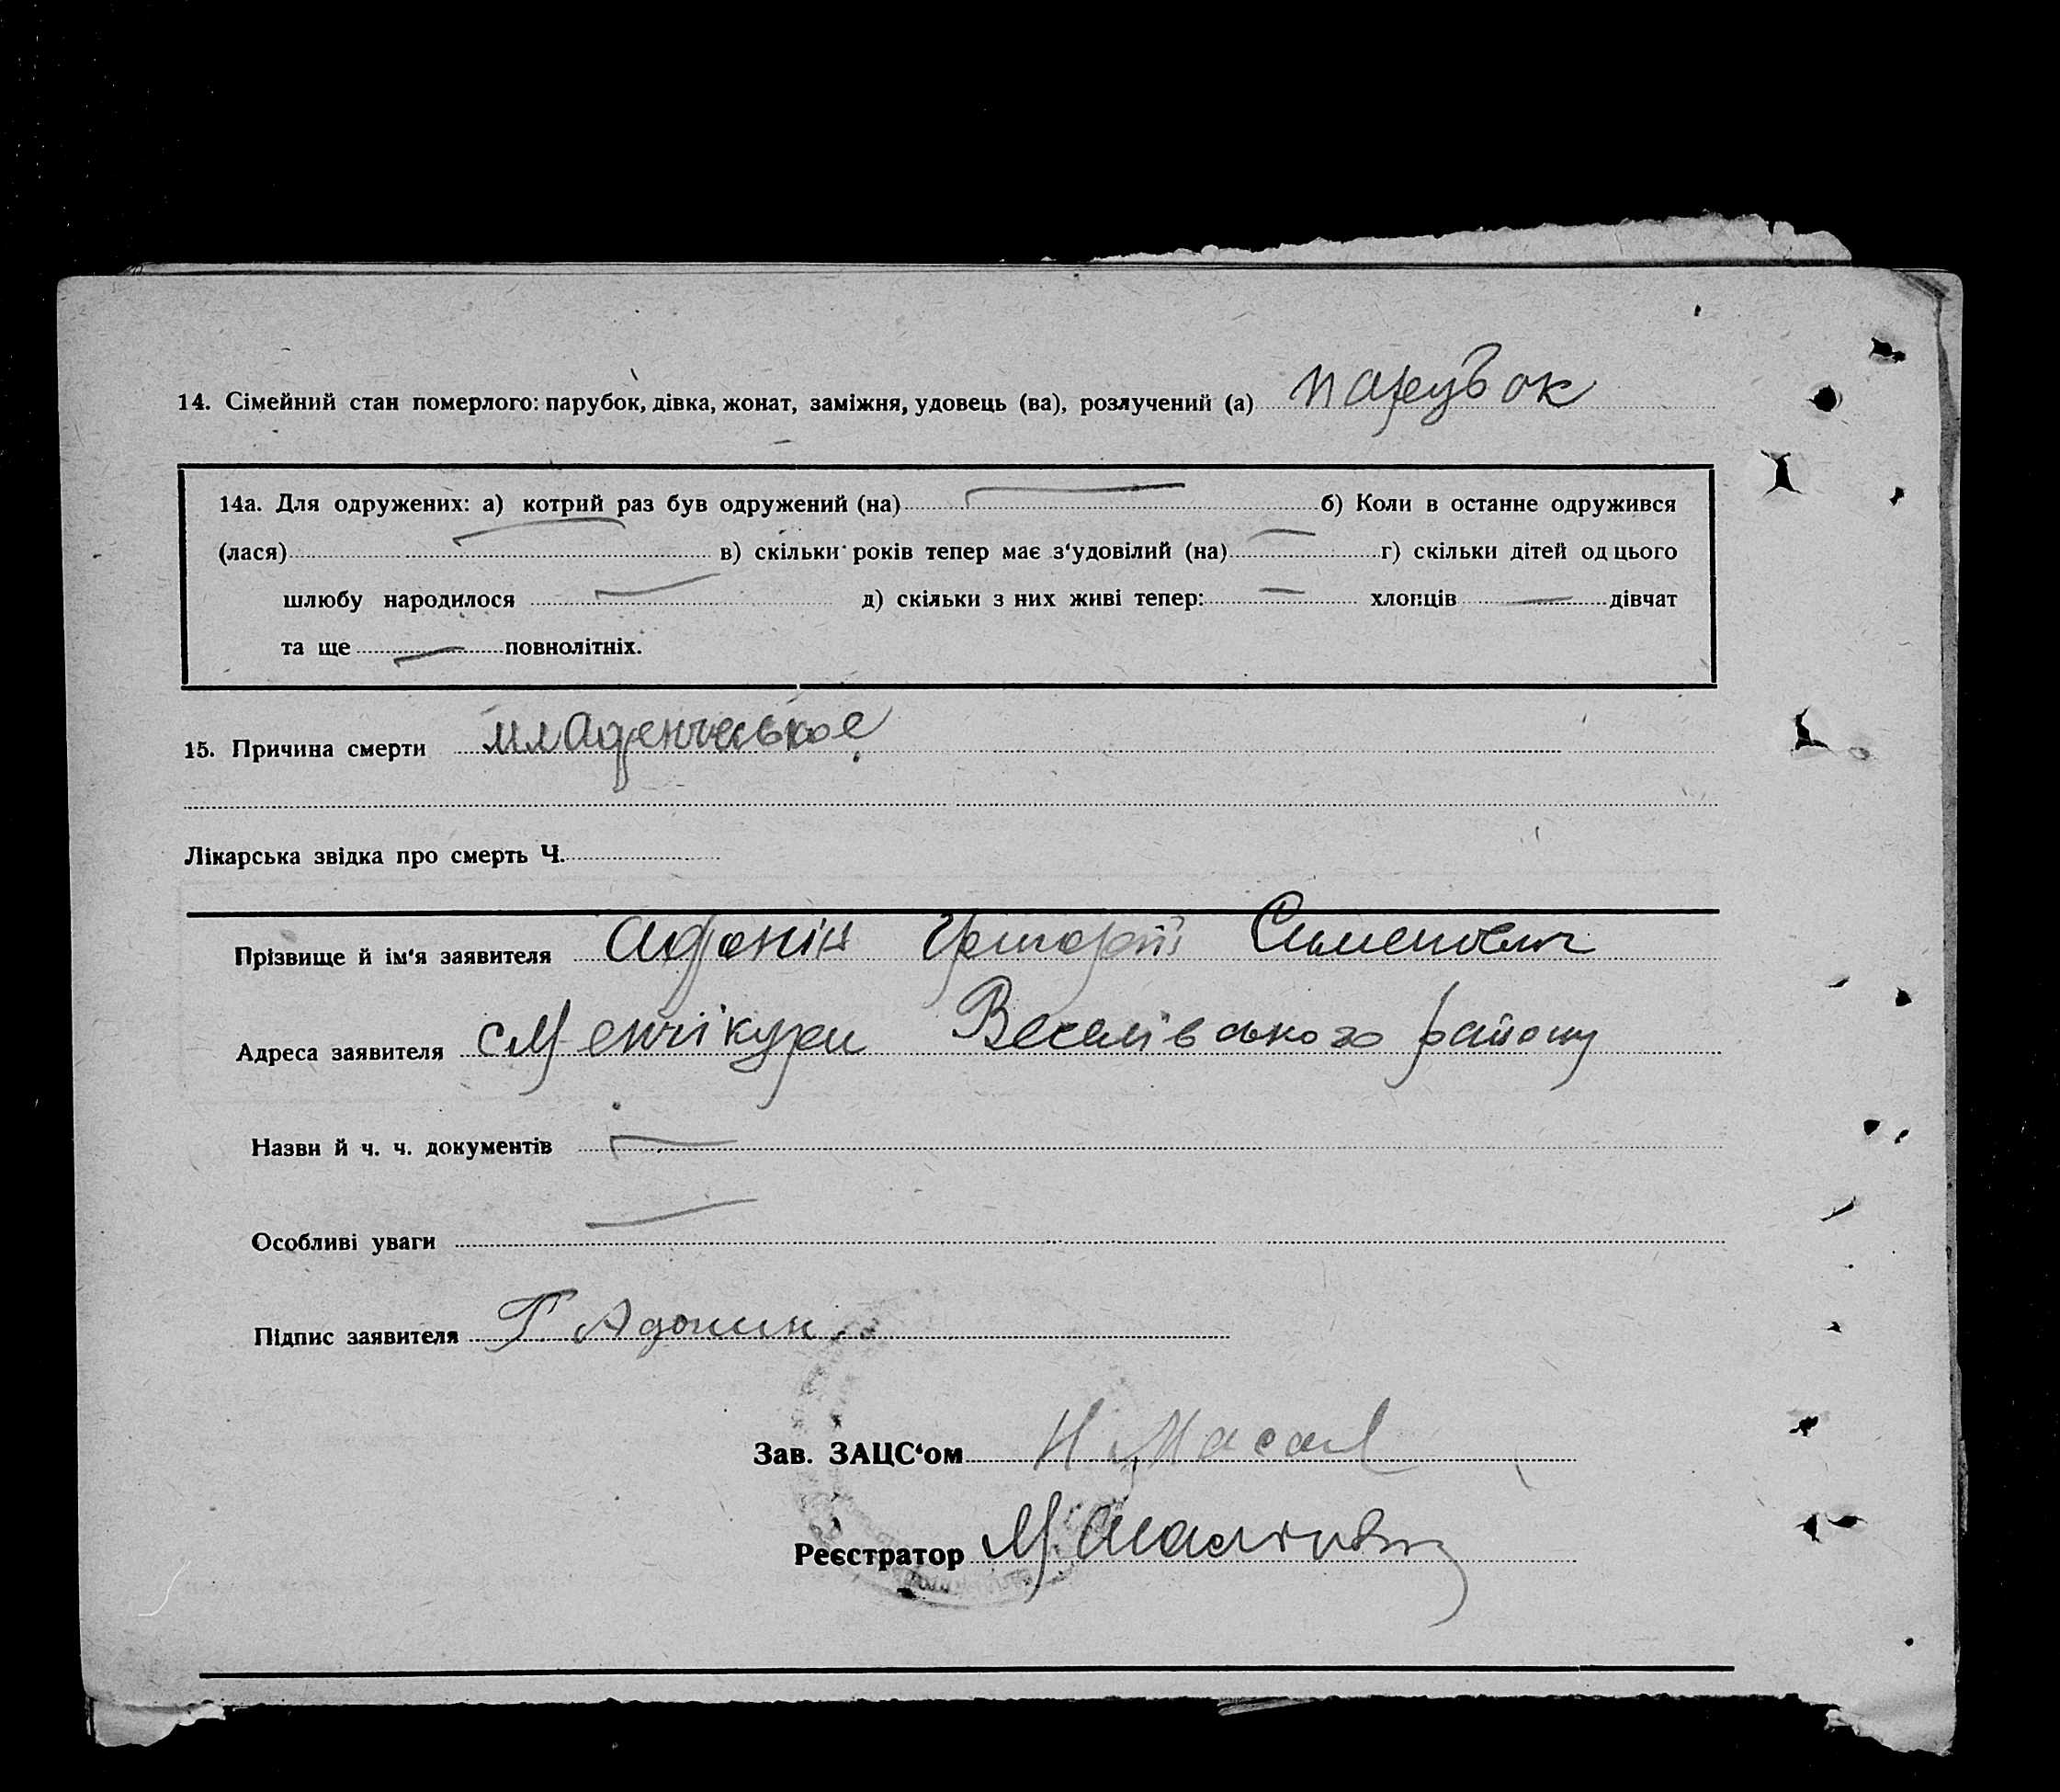 14. Сімейний стан померлого: парубок, дівка, жонат, заміжня, удовець (ва), розлучений (а) парубок
14а. Для одружених: а) котрий раз був одружений (на) б) Коли в останне одружився
(лася) в) скільки років тепер має з‘удовілий (на) г) скільки дітей од цього
шлюбу народилося д) скільки з них живі тепер: хлопців дівчат
та ще повнолітніх.
15. Причина смерти младенчеське
Лікарська звідка про смерть Ч.
Прізвище й ім‘я заявителя Афонін Григорій Сименович
Адреса заявителя с Менчікури Веселівського району
Назви й ч. ч. документів
Особливі уваги
Підпис заявителя Г. Афонин
Зав. ЗАЦС‘ом
Реєстратор